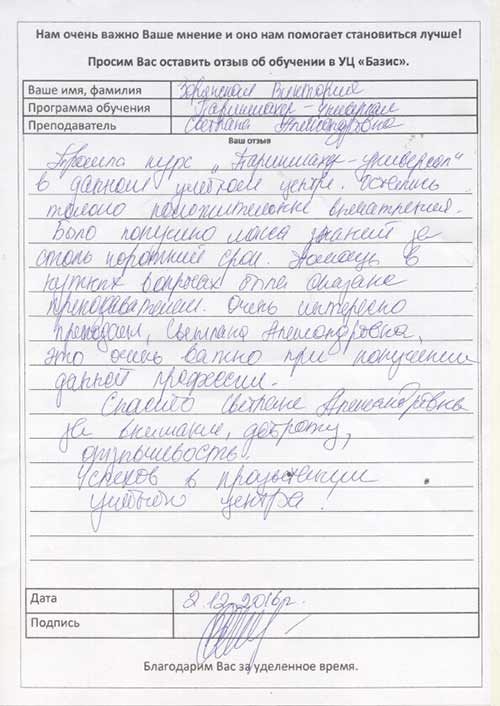 Нам очень важно Ваше мнение и оно нам помогает становиться лучше!
Просим Вас оставить отзыв об обучении в УЦ «Базис».
Ваше имя, фамилия Виктория
Программа обучения Парикмахер-универсал
Преподаватель Светлана Александровна
Ваш отзыв
Прошла курс „Парикмахер-универсал"
в данном учебном центре. Остались
только положительные впечатления.
Было получено масса знаний за
столь короткий срок. Помощь в
нужных вопросах была оказана
преподавателем. Очень интересно
Светлана Александровна,
это очень важно при получении
данной профессии.
Спасибо Светлане Александровне
за внимание, доброту,
отзывчивость.
Успехов в процветании
учебного центра!
Дата 2.12.2016г.
Подпись
Благодарим Вас за уделенное время.